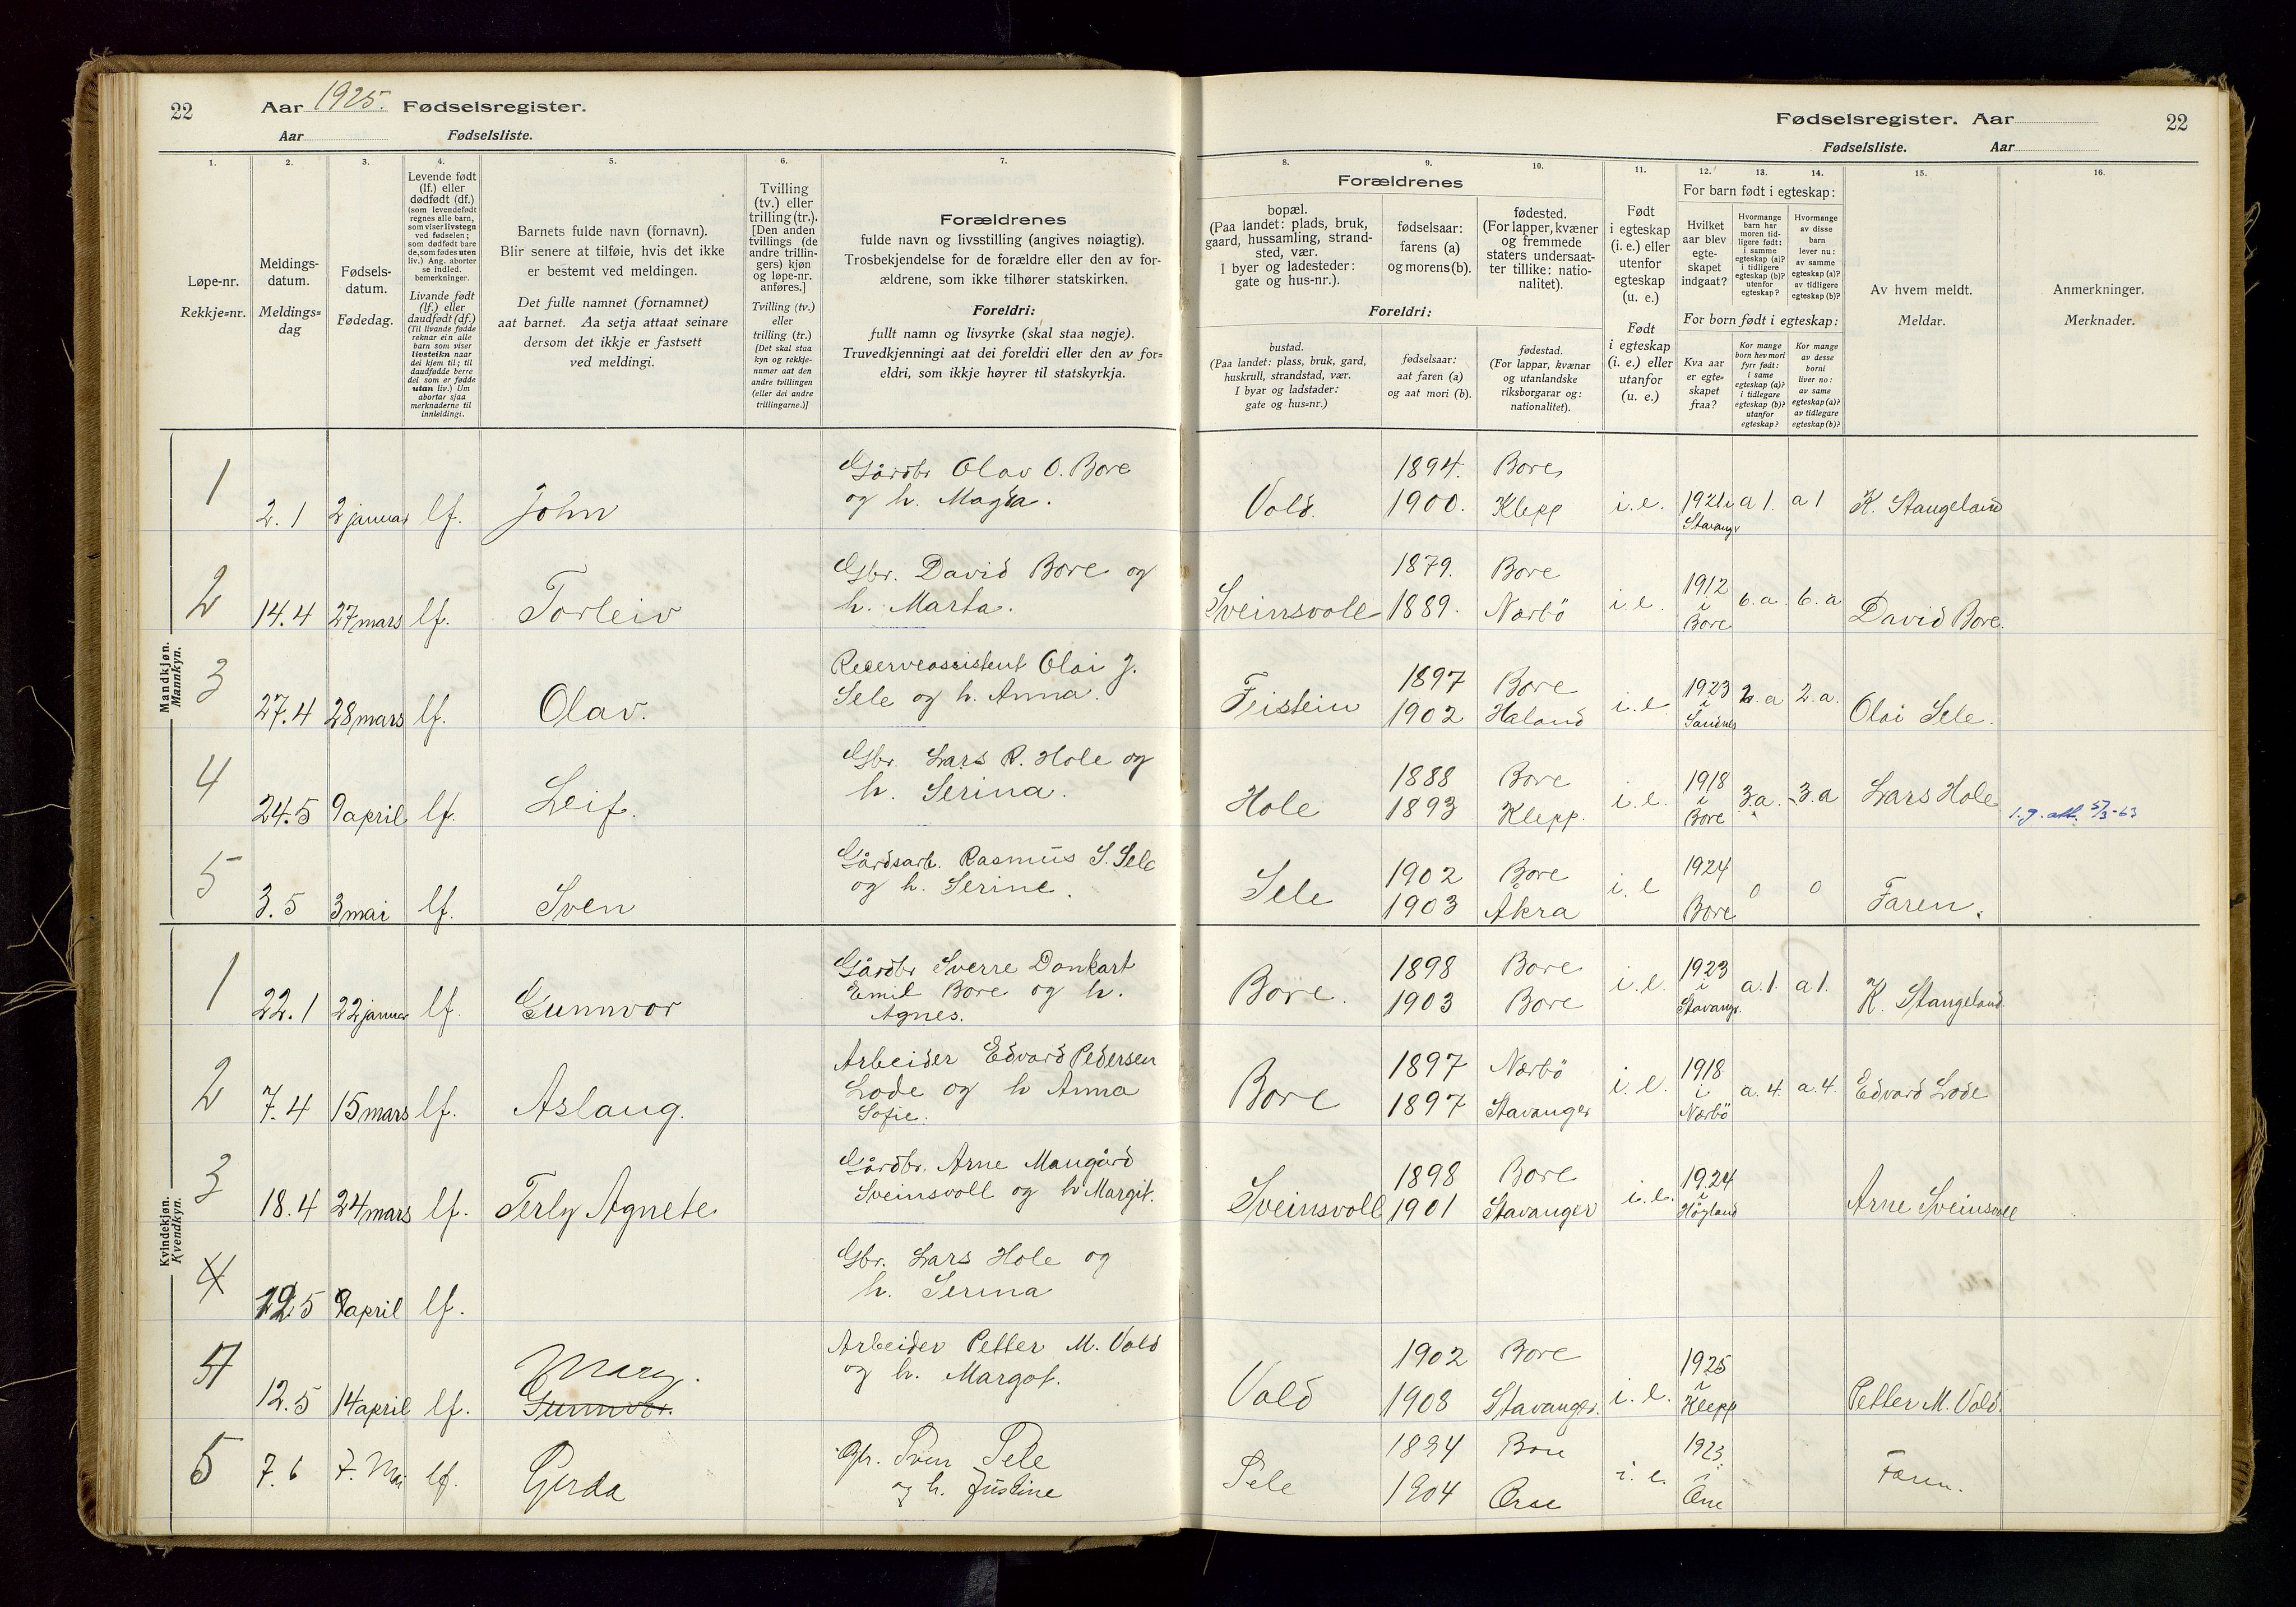 22 Aar 1925. Fødselsregister.
Aar Fødselsliste.
1. 2. 3. 4. 5. 6. 7.
Løpe-nr.
Rekkje=nr.
Meldings-
datum.
Meldings=
dag
Fødsels-
datum.
Fødedag.
Levende født
(lf.) eller
dødfødt (df.)
(som levendefødt
regnes alle barn,
som viser livstegn
ved fødselen;
som dødfødt bare
de, som fødes uten
liv.) Ang. aborter
se indled.
bemerkninger.
Livande født
(lf.) eller
daudfødt (df.)
(Til livande fødde
reknar ein alle
barn som viser
livsteikn naar
dei kjem til; til
daudfødde berre
dei som er fødde
utan liv.) Um
abortar sjaa
merknaderne til
innleidingi.
Barnets fulde navn (fornavn).
Blir senere at tilføie, hvis det ikke
er bestemt ved meldingen.
Det fulle namnet (fornamnet)
aat barnet. Aa setja attaat seinare
dersom det ikkje er fastsett
ved meldingi.
Tvilling
(tv.) eller
trilling (tr.).
[Den anden
tvillings (de
andre trillin-
gers) kjøn
og løpe-nr.
anføres.]
Tvilling (tv.)
eller
trilling (tr.)
[Det skal staa
kyn og rekkje-
numer aat den
andre tvillingen
(eller dei andre
trillingarne.)]
Forældrenes
fulde navn og livsstilling (angives nøiagtig).
Trosbekjendelse for de forældre eller den av for-
ældrene, som ikke tilhører statskirken.
Foreldri:
fullt namn og livsyrke (skal staa nøgje).
Truvedkjenningi aat dei foreldri eller den av for=
eldri, som ikkje høyrer til statskyrkja.
Mandkjøn.
Mannkyn.
1 2.1 2 januar lf. John Gårdbr Olav O. Bore
og h. Magda.
2 14.4 27 mars lf. Torleiv Gbr. David Bore og
h. Marta.
3 27.4 28 mars lf. Olav. Reserveassistent Olai J.
Sele og h. Anna.
4 24.5 9 april lf. Leif. Gbr. Lars R. Hole og
h. Serina.
5 3.5 3 mai lf. Sven Gårdsarb. Rasmus S. Sele
og h. Serine.
Kvindekjøn.
Kvendkyn.
1 22.1 22 januar lf. Gunnvor Gårdbr Sverre Dankart
Emil Bore og h.
Agnes.
2 7.4 15 mars lf. Aslaug. Arbeider Edvard Pedersen
Lode og h Anna
Sofie.
3 18.4 24 mars lf. Terly Agnete Gårdbr. Arne Maugård
Sveinsvoll og h Margit.
4 12.5 9 april lf. Gbr. Lars Hole og
h. Serina
4 12.5 14 april lf. Mary. Arbeider Petter M. Vold
Gunnvor. og h. Margot.
5 7.6 7. Mai lf. Gerda Gbr. Sven Sele
og h. Justine
Fødselsregister. Aar 22
Fødselsliste. Aar
8. 9. 10. 11. 12. 13. 14. 15. 16.
Forældrenes
bopæl.
(Paa landet: plads, bruk,
gaard, hussamling, strand-
sted, vær.
I byer og ladesteder:
gate og hus-nr.).
fødselsaar:
farens (a)
og morens (b).
fødested.
(For lapper, kvæner
og fremmede
staters undersaat-
ter tillike: natio-
nalitet).
Foreldri:
bustad.
(Paa landet: plass, bruk, gard,
huskrull, strandstad, vær.
I byar og ladstader:
gate og hus=nr.)
fødselsaar:
aat faren (a)
og aat mori (b).
fødestad.
(For lappar, kvænar
og utanlandske
riksborgarar og:
nationalitet).
Født
i egteskap
(i. e.) eller
utenfor
egteskap
(u. e.)
Født
i egteskap
(i. e.) eller
utanfor
(u. e.)
For barn født i egteskap:
Hvilket
aar blev
egte-
skapet
indgaat?
Hvormange
barn har
moren tid-
ligere født:
i samme
egteskap (a)?
i tidligere
egteskap (b)?
utenfor
egteskap?
Hvormange
av disse
barn
lever nu:
av samme
egteskap (a)?
av tidligere
egteskap (b)?
For born født i egteskap:
Kva aar
er egte=
skapet
fraa?
Kor mange
born hev mori
fyrr født:
i same
egteskap (a)?
i tidlegare
egteskap (b)?
utanfor
egteskap?
Kor mange
av desse
borni
liver no:
av same
egteskap (a)?
av tidlegare
egteskap (b)?
Av hvem meldt.
Meldar.
Anmerkninger.
Merknader.
Vold. 1894. Bore
1900. Klepp i.e. 1921 i Stavangr a 1. a 1 K. Stangeland
Sveinsvoll 1879. Bore
1889. Nærbö i.e. 1912 i Bore 6.a. 6.a David Bore.
Feistein 1897 Bore
1902 Håland i.e. 1923 i Sandnes 2.a 2.a. Olai Sele.
Hole 1888 Bore
1893 Klepp. i.e. 1918 i Bore 3.a. 3.a Lars Hole 1.g. att. 5/3-63
Sele 1902 Bore
1903 Åkra i.e 1924 Bore 0 0 Faren.
Bore. 1898 Bore
1903 Bore i.e. 1923 i Stavangr. a.1. a 1. K. Stangeland
Bore 1897 Nærbö
1897 Stavanger i.e. 1918 i Nærbö a.4. a.4. Edvard Lode
Sveinsvoll 1898 Bore
1901 Stavanger i.e. 1924 i Högland Arne Sveinsvoll
Vold 1902 Bore
1908 Stavanger. i.e. 1925 i Klepp Petter M. Vold.
Sele 1894 Bore
1904 i.e. 1923 i Faren.